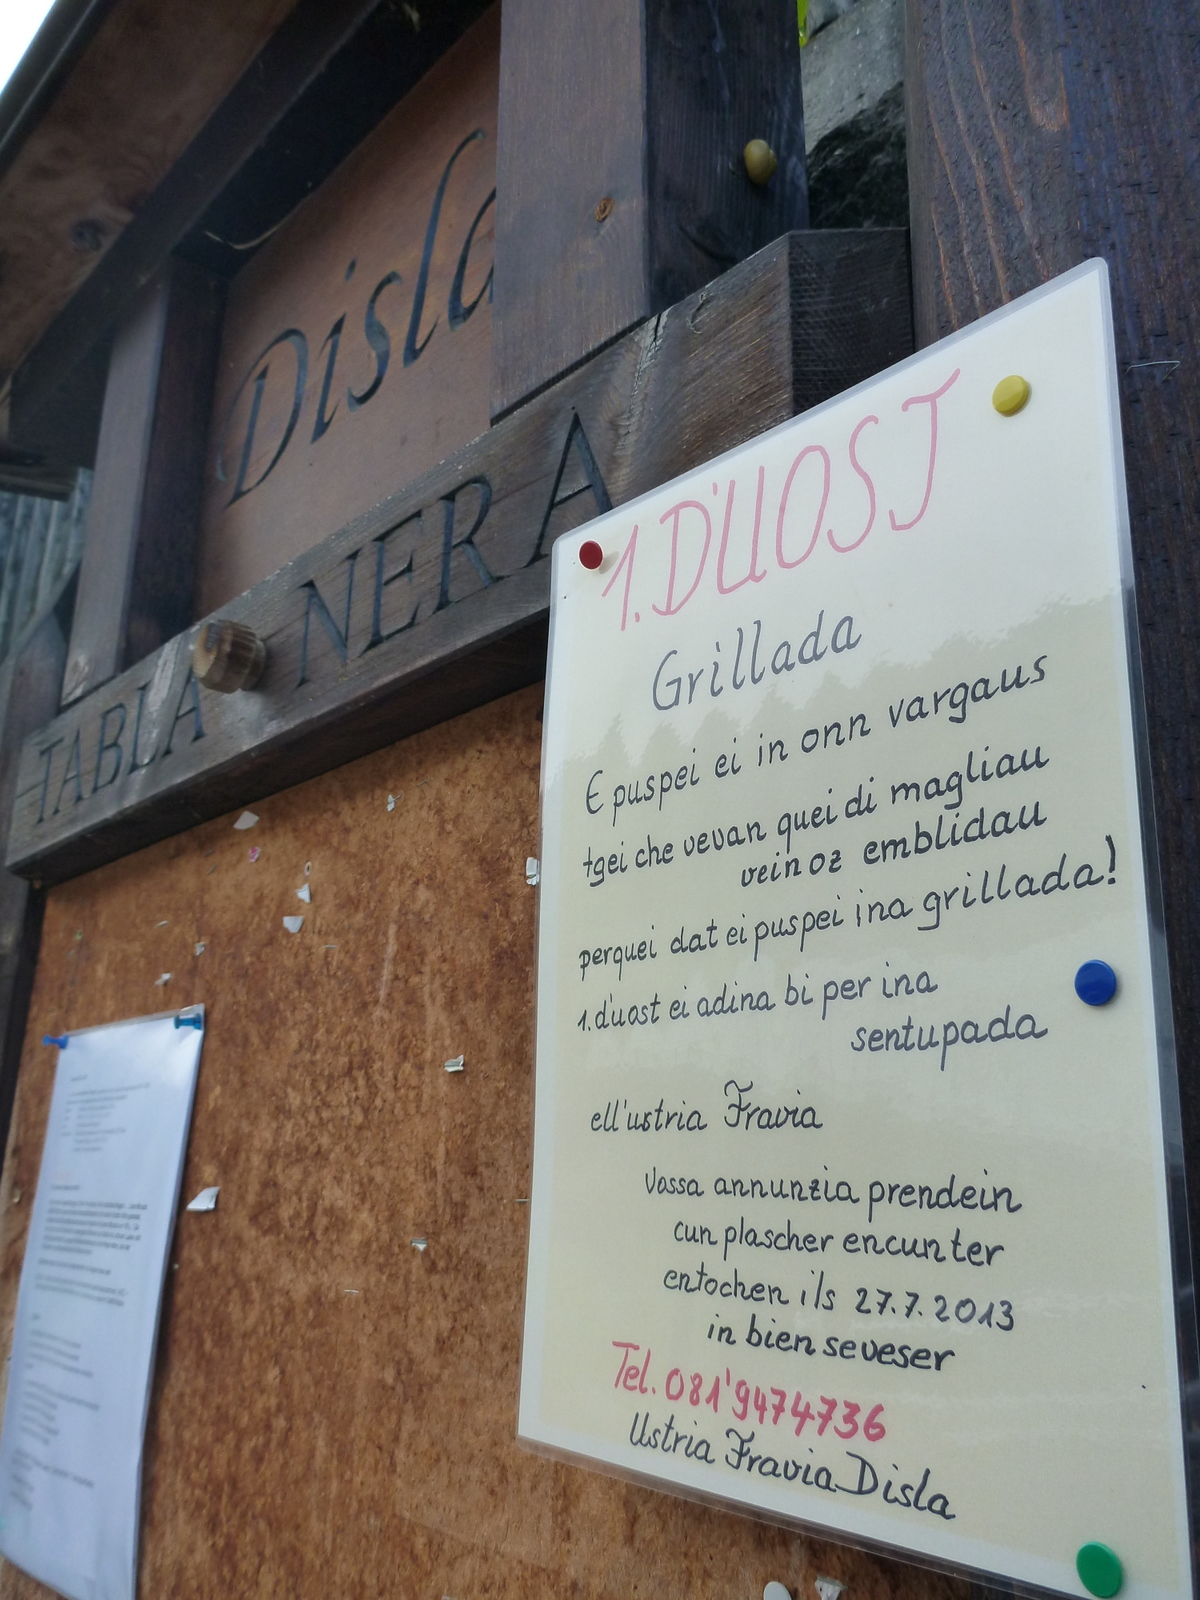 Disla
TABLA NERA
1. D'UOST
Grillada
E puspei ei in onn vargaus
tgei che vevan quei di magliau
vein oz emblidau
perquei dat ei puspei ina grillada!
1. d'uost ei adina bi per ina
sentupada
ell'ustria Fravia
Vossa annunzia prendein
cun plascher encunter
entochen ils 27.7.2013
in bien seveser
Tel. 081'9474736
Ustria Fravia Disla